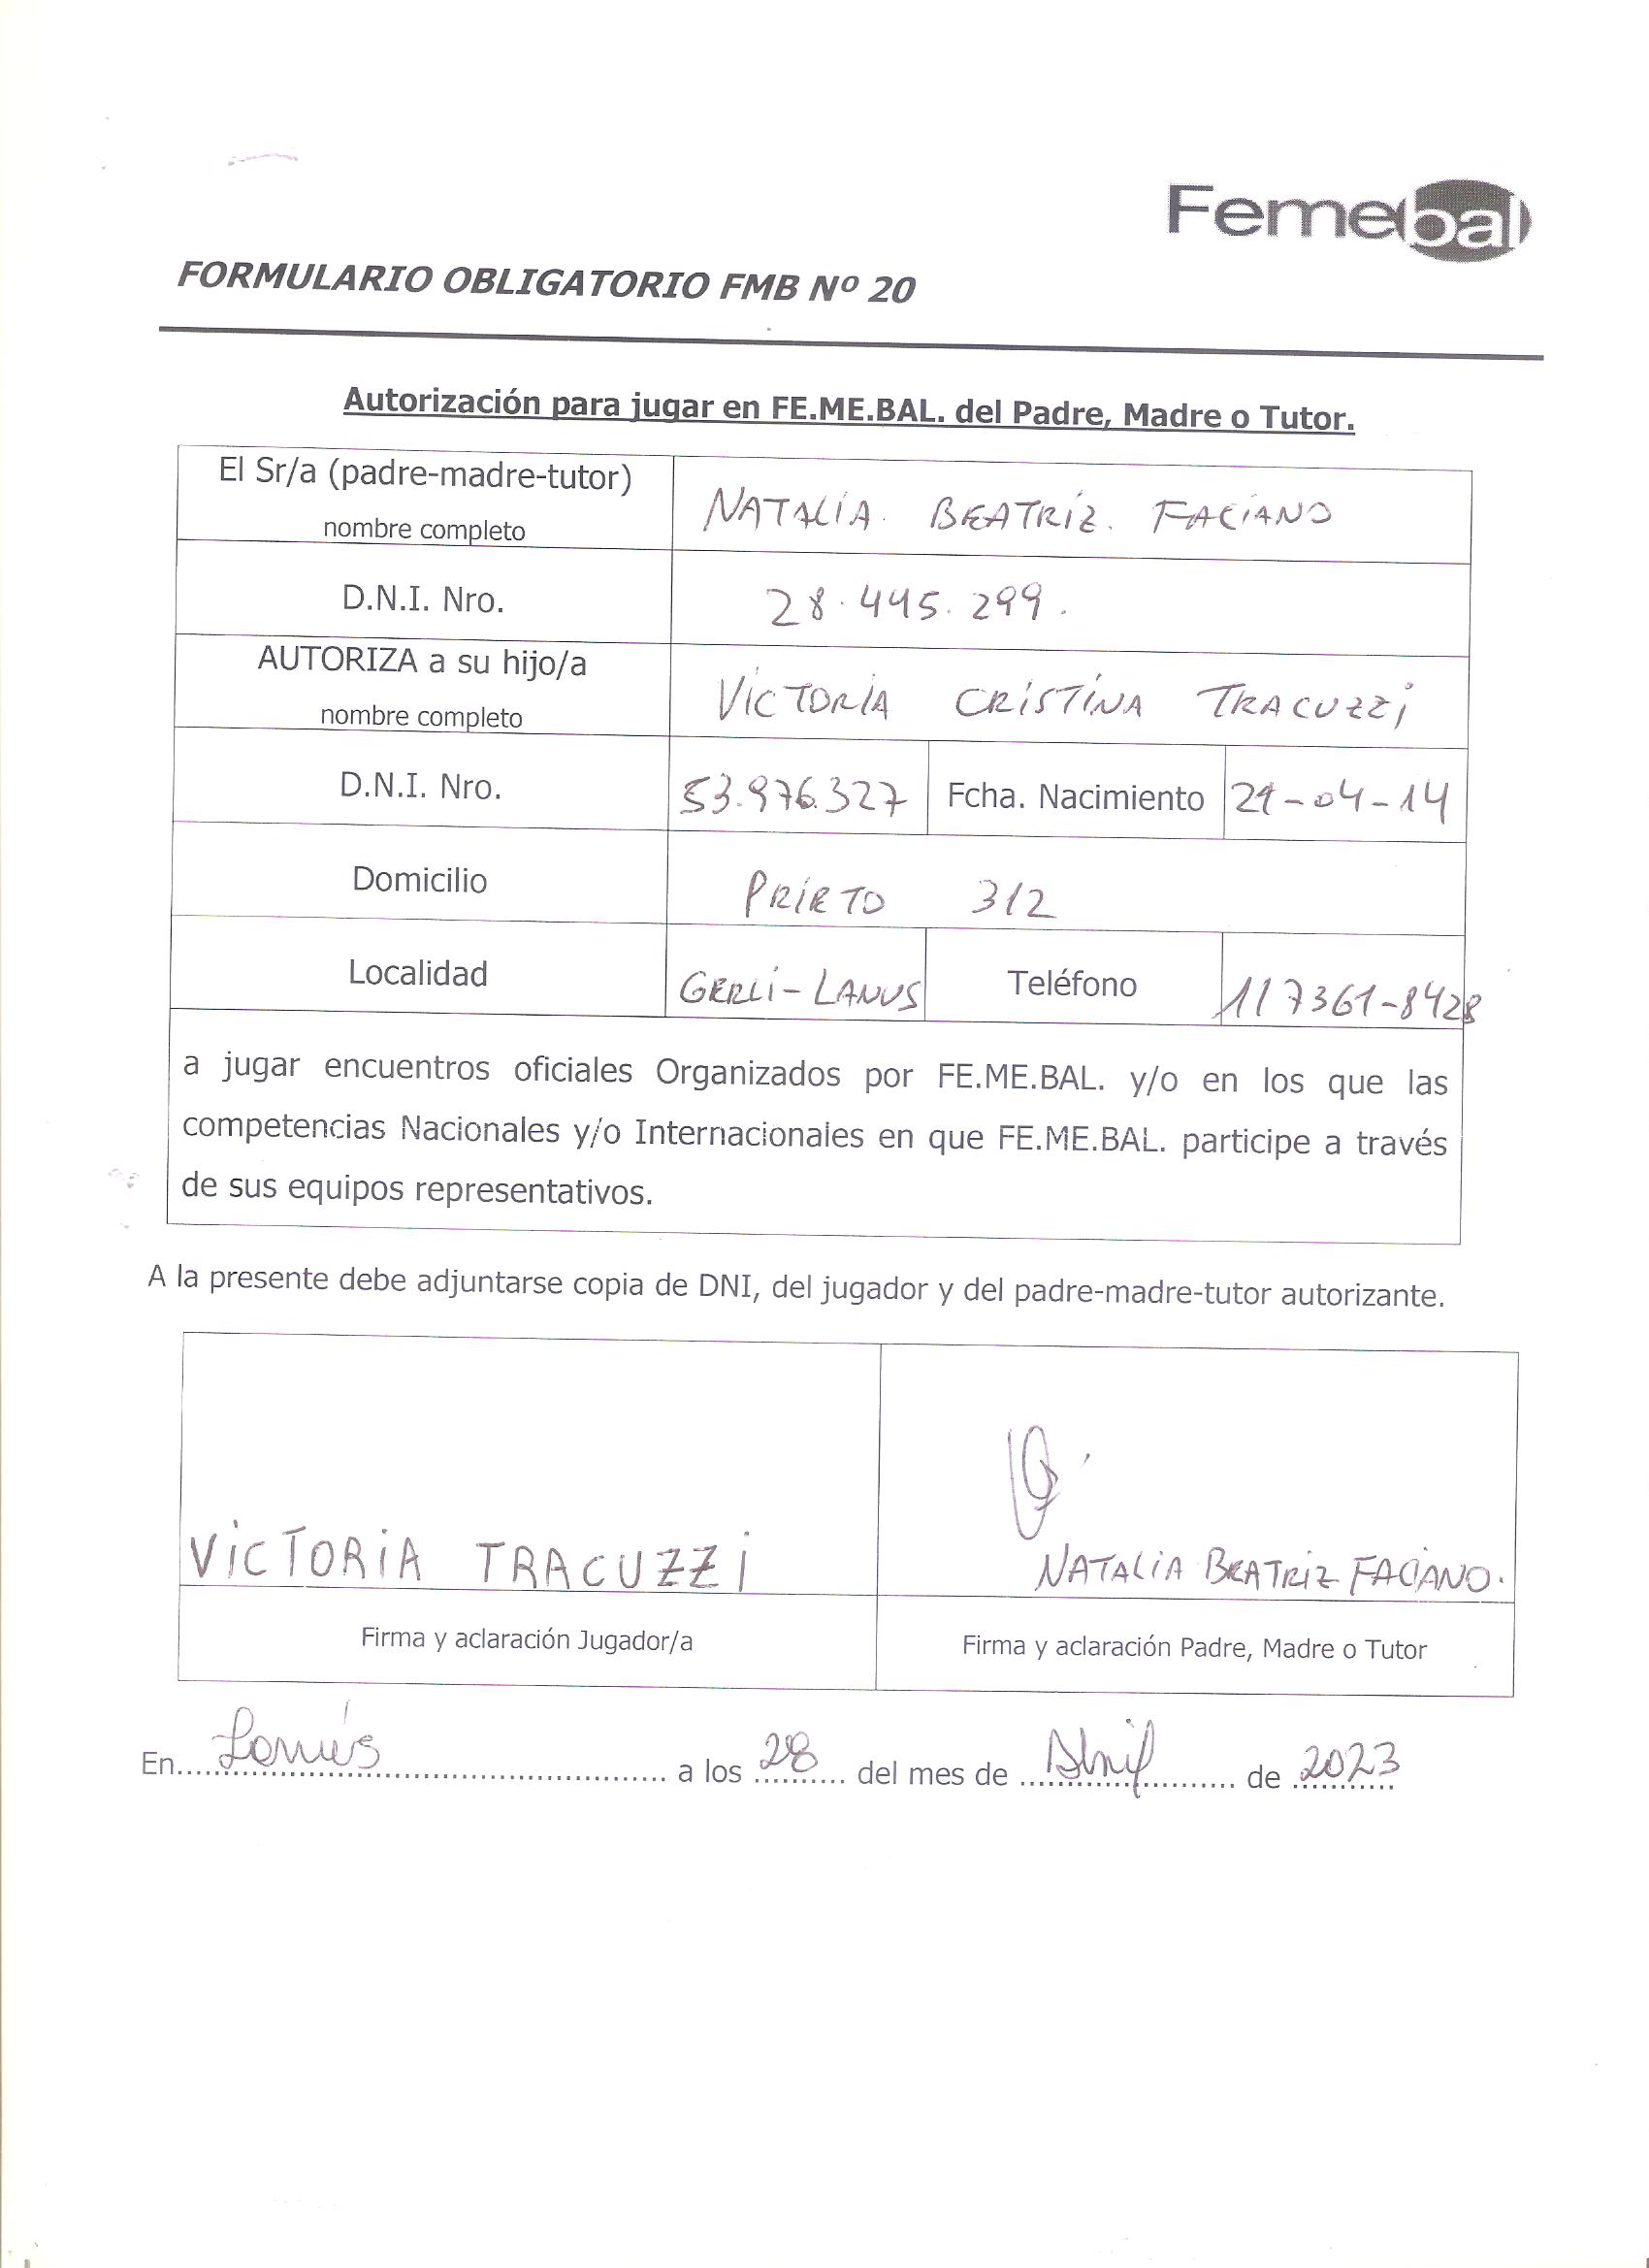 Femebal
FORMULARIO OBLIGATORIO FMB Nº 20
Autorización para jugar en FE.ME.BAL. del Padre, Madre o Tutor.
El Sr/a (padre-madre-tutor)
nombre completo
NATALIA. BEATRIZ. FACIANO
D.N.I. Nro.
28.445.299.
AUTORIZA a su hijo/a
nombre completo
VICTORIA CRISTINA TRACUZZI
D.N.I. Nro. 53.976.327 Fcha. Nacimiento 21-04-14
Domicilio PRIETO 312
Localidad GERLI-LANUS Teléfono 117361-8428
a jugar encuentros oficiales Organizados por FE.ME.BAL. y/o en los que las
competencias Nacionales y/o Internacionales en que FE.ME.BAL. participe a través
de sus equipos representativos.
A la presente debe adjuntarse copia de DNI, del jugador y del padre-madre-tutor autorizante.
VICTORIA TRACUZZI
NATALIA BEATRIZ FACIANO.
Firma y aclaración Jugador/a
Firma y aclaración Padre, Madre o Tutor
En Lanús a los 28 del mes de Abril de 2023